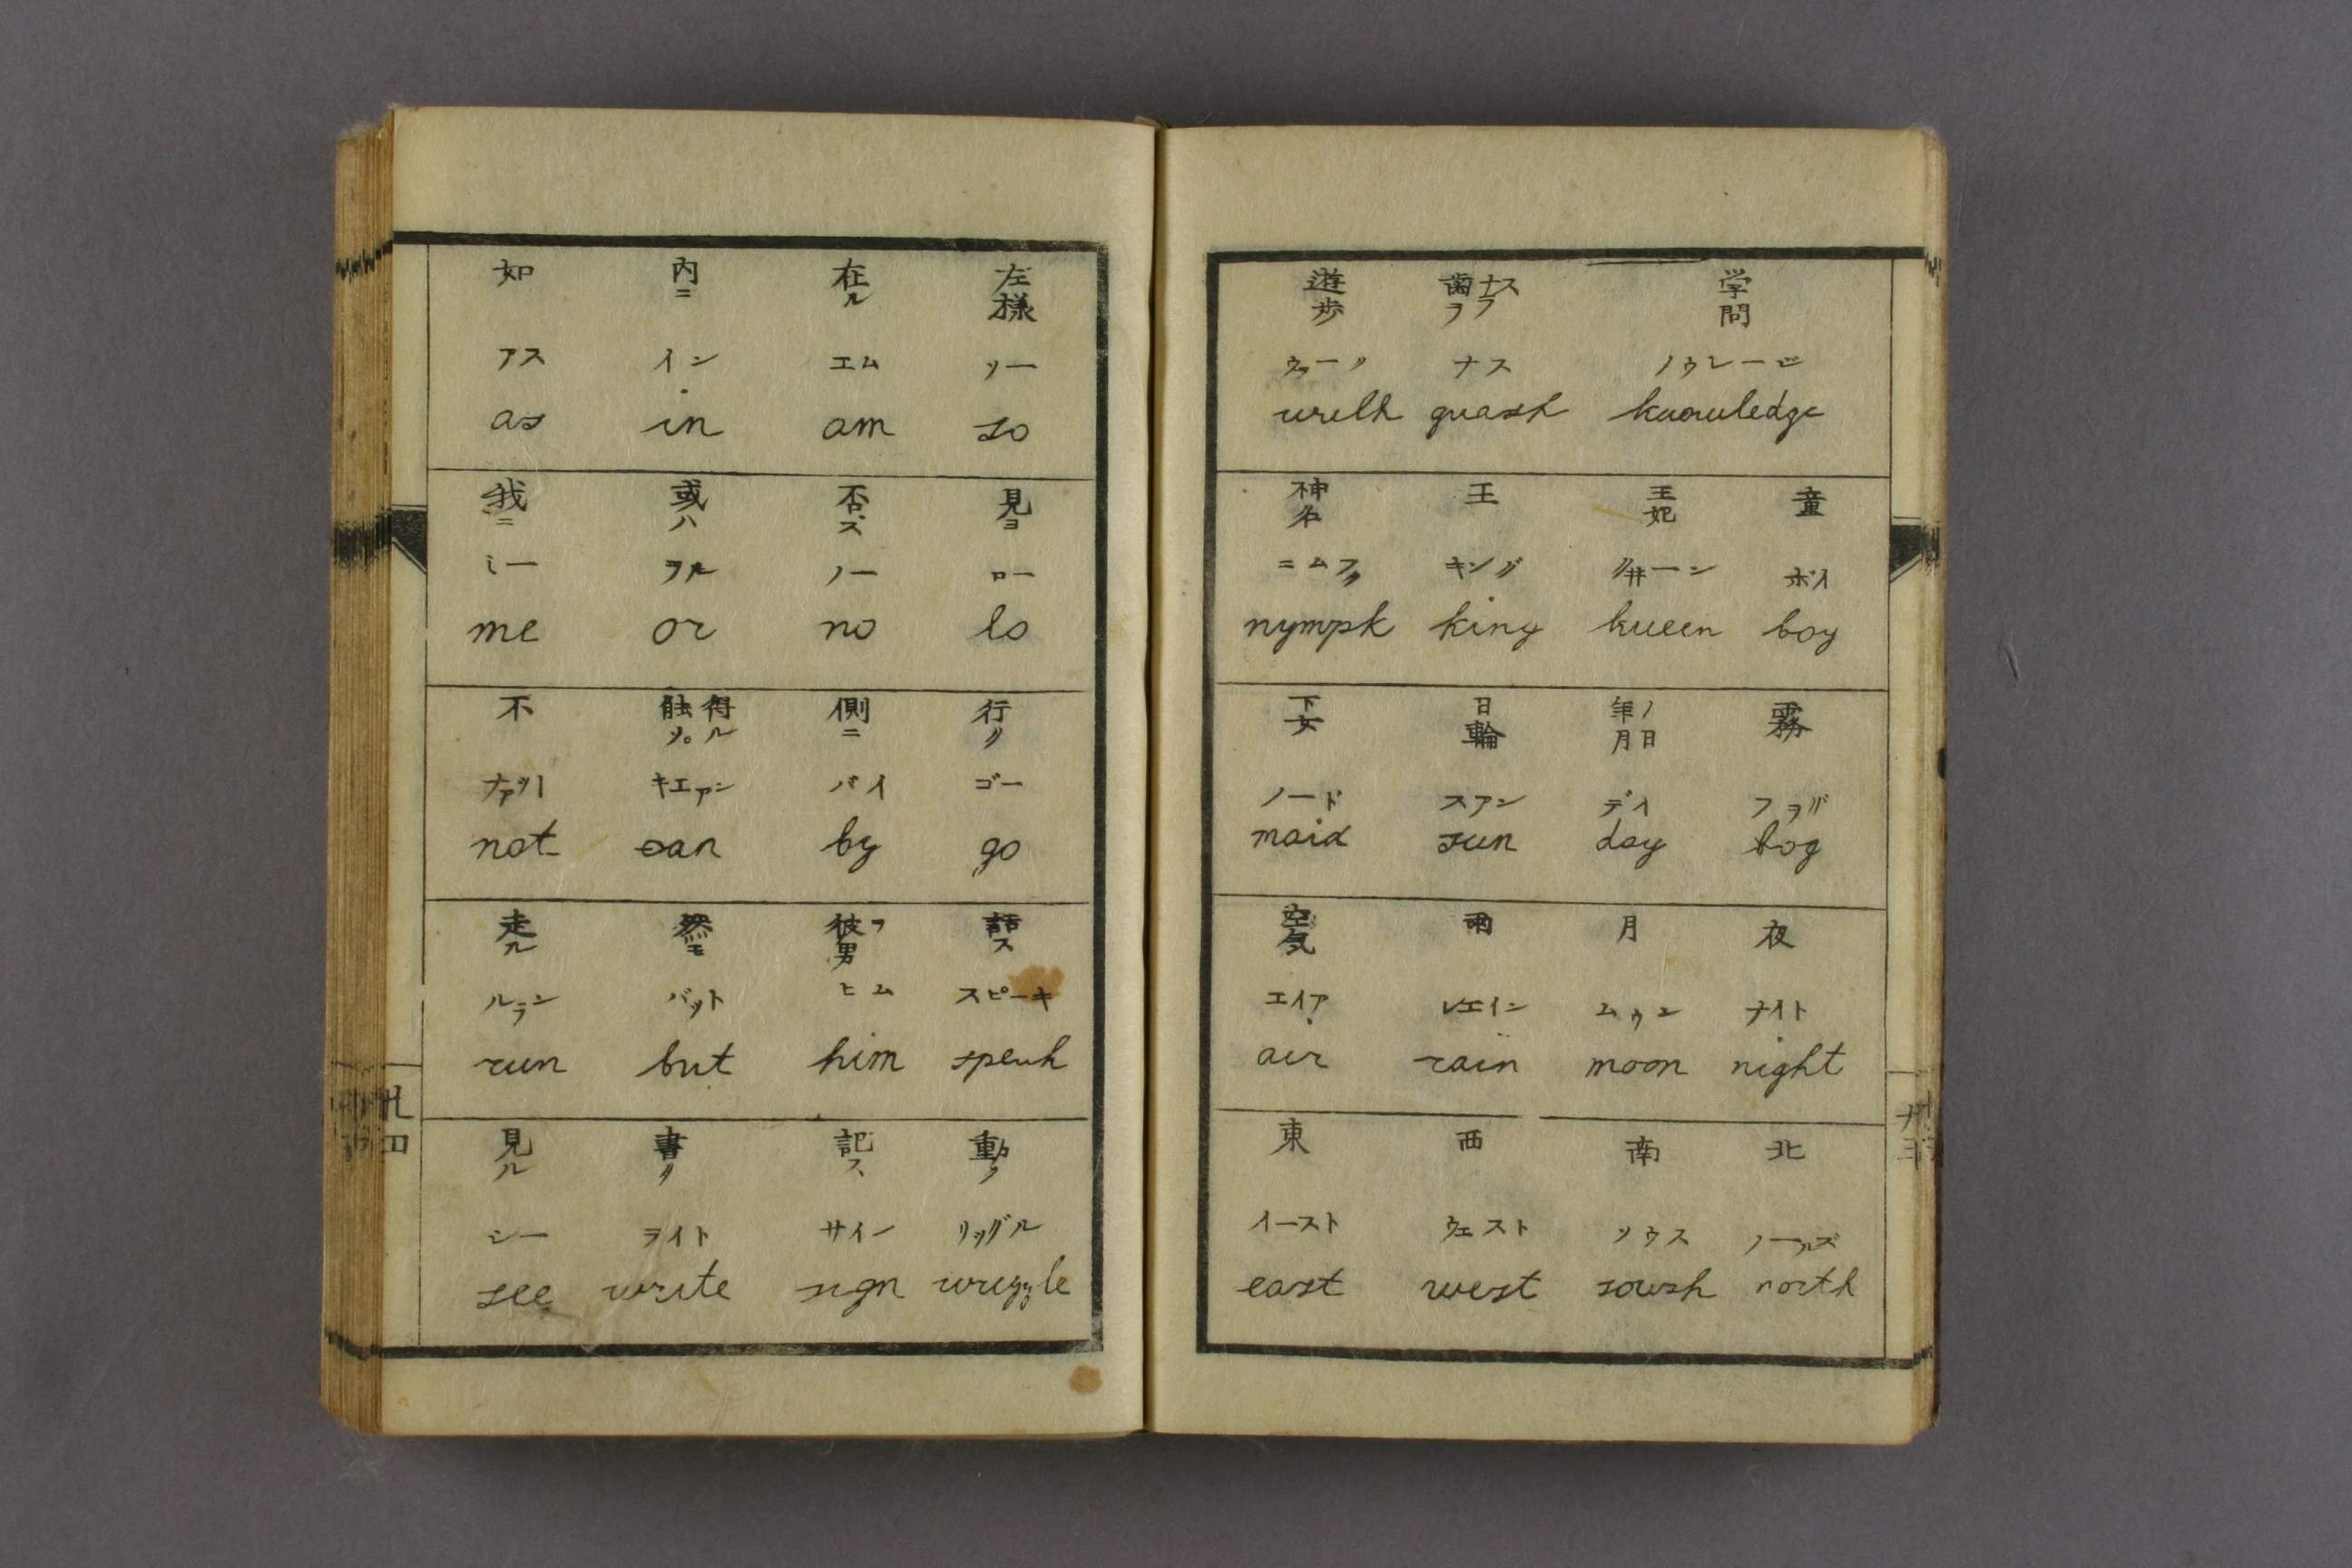 学問 歯ヲナラス 遊歩
ノウレージ ナス
knowledge gnash wrelh
童 王妃 王 神名
ボイ クヰーン キング ニムフ
boy kueen king nympk
霧 年月ノ日 日輪 下女
フヲグ デイ スアン ノード
bog day sun maid
夜 月 雨 空気
ナイト ムウン レエイン エイア
night moon rain air
北 南 西 東
ノールズ ソウス ウエスト イースト
north sowsh west east
廿三
左様 在ル 内ニ 如
ソー エム イン アス
so am in as
見ヨ 否ズ 或ハ 我ニ
ロー ノー ヲル ミー
lo no or me
行ク 側ニ 得ル 不
ゴー バイ キエアン ナアット
go by can not
話ス 彼男ヲ 然モ 走ル
スピーキ ヒム バット ルラン
speuk him but run
動ク 記ス 書ク 見ル
リッグル サイン ライト シー
wriggle sign write see
廿四